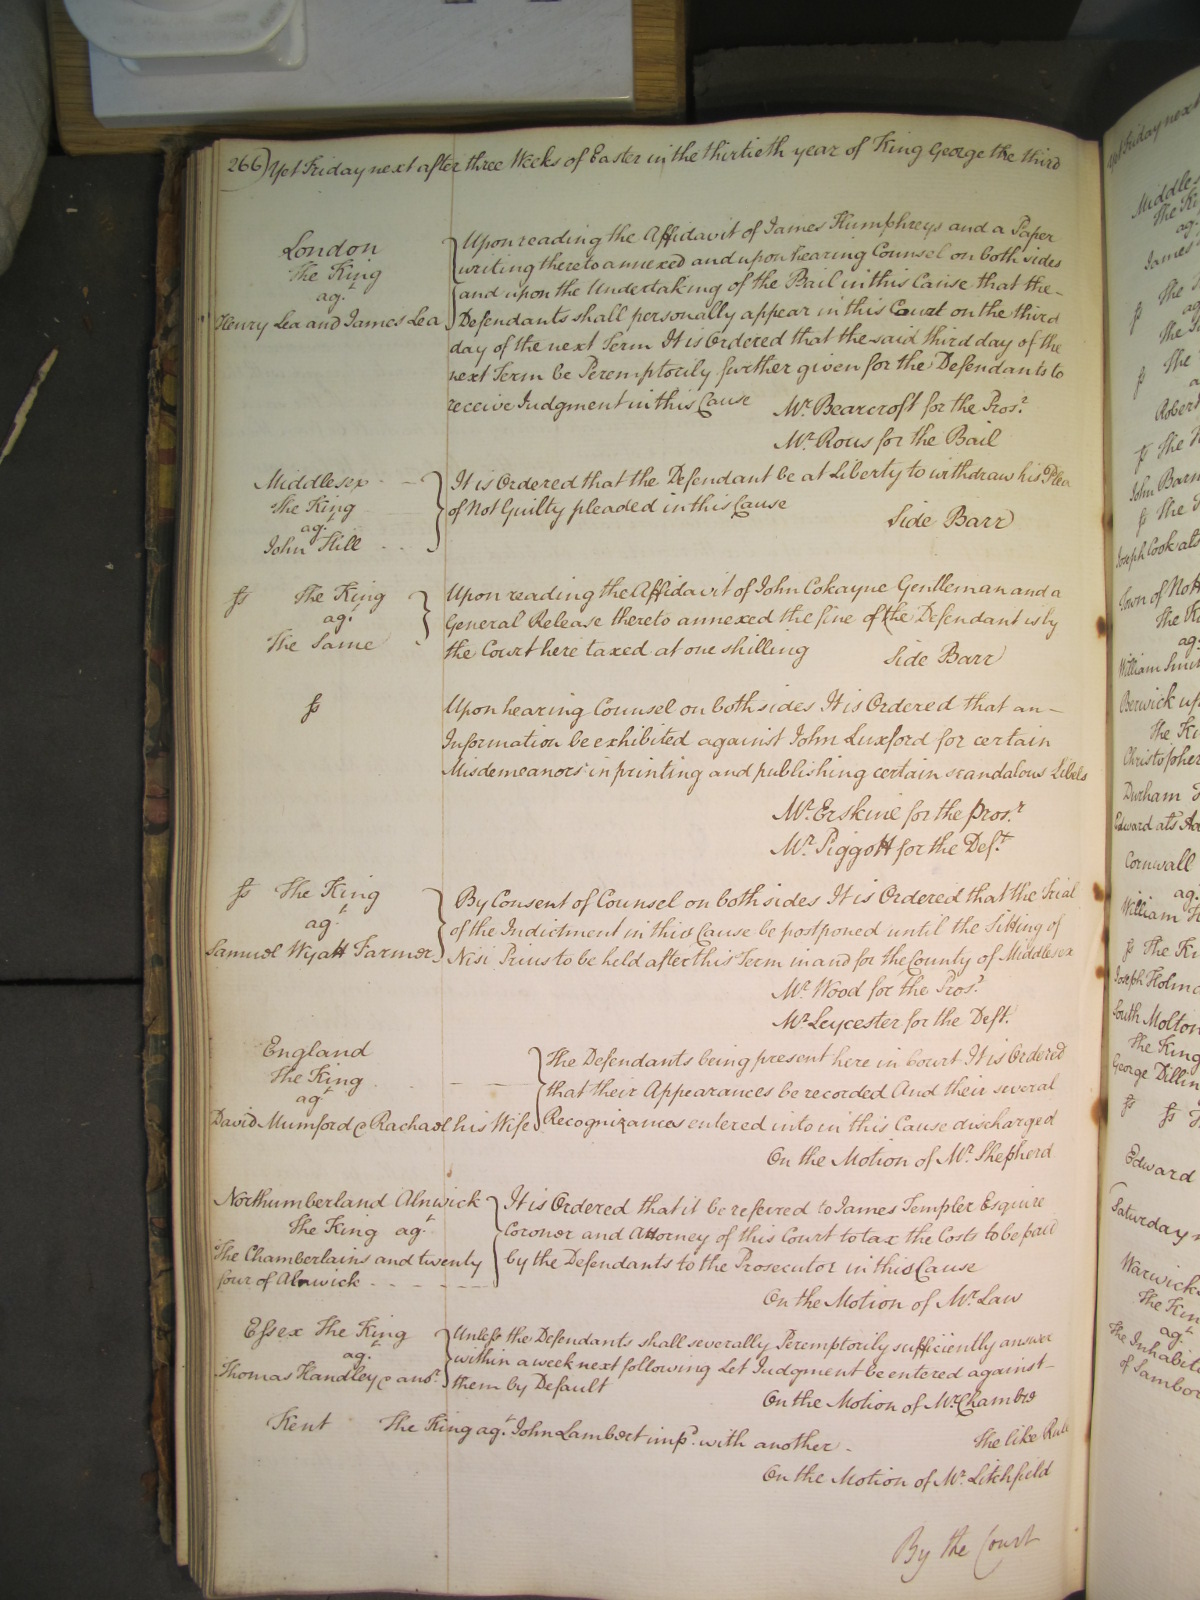 266) Yet Friday next after three Weeks of Easter in the thirtieth year of King George the third
London
The King
agt.
Henry Lea and James Lea
Upon reading the Affidavit of James Humphreys and a Paper
writing thereto annexed and upon hearing Counsel on both sides
and upon the Undertaking of the Bail in this Cause that the
Defendants shall personally appear in this Court on the third
day of the next Term It is Ordered that the said third day of the
next Term be Peremptorily further given for the Defendants to
receive Judgment in this Cause
Mr. Bearcroft for the Prosr.
Mr. Rous for the Bail
Middlesex
The King
agt.
John Hill
It is Ordered that the Defendant be at Liberty to withdraw his Plea
of Not Guilty pleaded in this Cause
Side Barr
fs The King
agt.
The Same
Upon reading the Affidavit of John Cokayne Gentleman and a
General Release thereto annexed the fine of the Defendant is by
the Court here taxed at one shilling
Side Barr
fs
Upon hearing Counsel on both sides It is Ordered that an
Information be exhibited against John Luxford for certain
Misdemeanors in printing and publishing certain scandalous Libels
Mr. Erskine for the Prosr.
Mr. Piggott for the Deft.
fs The King
agt.
Samuel Wyatt Farmer
By Consent of Counsel on both sides It is Ordered that the Trial
of the Indictment in this Cause be postponed until the Sitting of
Nisi Prius to be held after this Term in and for the County of Middlesex
Mr. Wood for the Prosr.
Mr. Leycester for the Deft.
England
The King
agt.
David Mumford & Rachael his Wife
The Defendants being present here in Court It is Ordered
that their Appearances be recorded And their several
Recognizances entered into in this Cause discharged
On the Motion of Mr. Shepherd
Northumberland Alnwick
The King agt.
The Chamberlains and twenty
four of Alnwick
It is Ordered that it be referred to James Templer Esquire
Coroner and Attorney of this Court to tax the Costs to be paid
by the Defendants to the Prosecutor in this Cause
On the Motion of Mr. Law
Essex The King
agt.
Thomas Handley & anor.
Unless the Defendants shall severally Peremptorily sufficiently answer
within a week next following Let Judgment be entered against
them by Default
On the Motion of Mr. Chambre
Kent The King agt. John Lambert impd. with another
The like Rule
On the Motion of Mr. Litchfield
By the Court
Friday next
Middles
The Ki
ag
James
fs The
ag
The
fs The
a
Robert
fs The K
John Barn
fs The
Joseph Cook ats
Town of Nott
The K
ag
William Smi
Berwick up
The Ki
Christopher
Durham
Edward ats
Cornwall
ag
William
fs The Ki
Joseph Holm
South Molton
The King
George Dillin
fs fs
Edward
Saturday
Warwick
The Kin
agt
The Inhabit
of Sambor